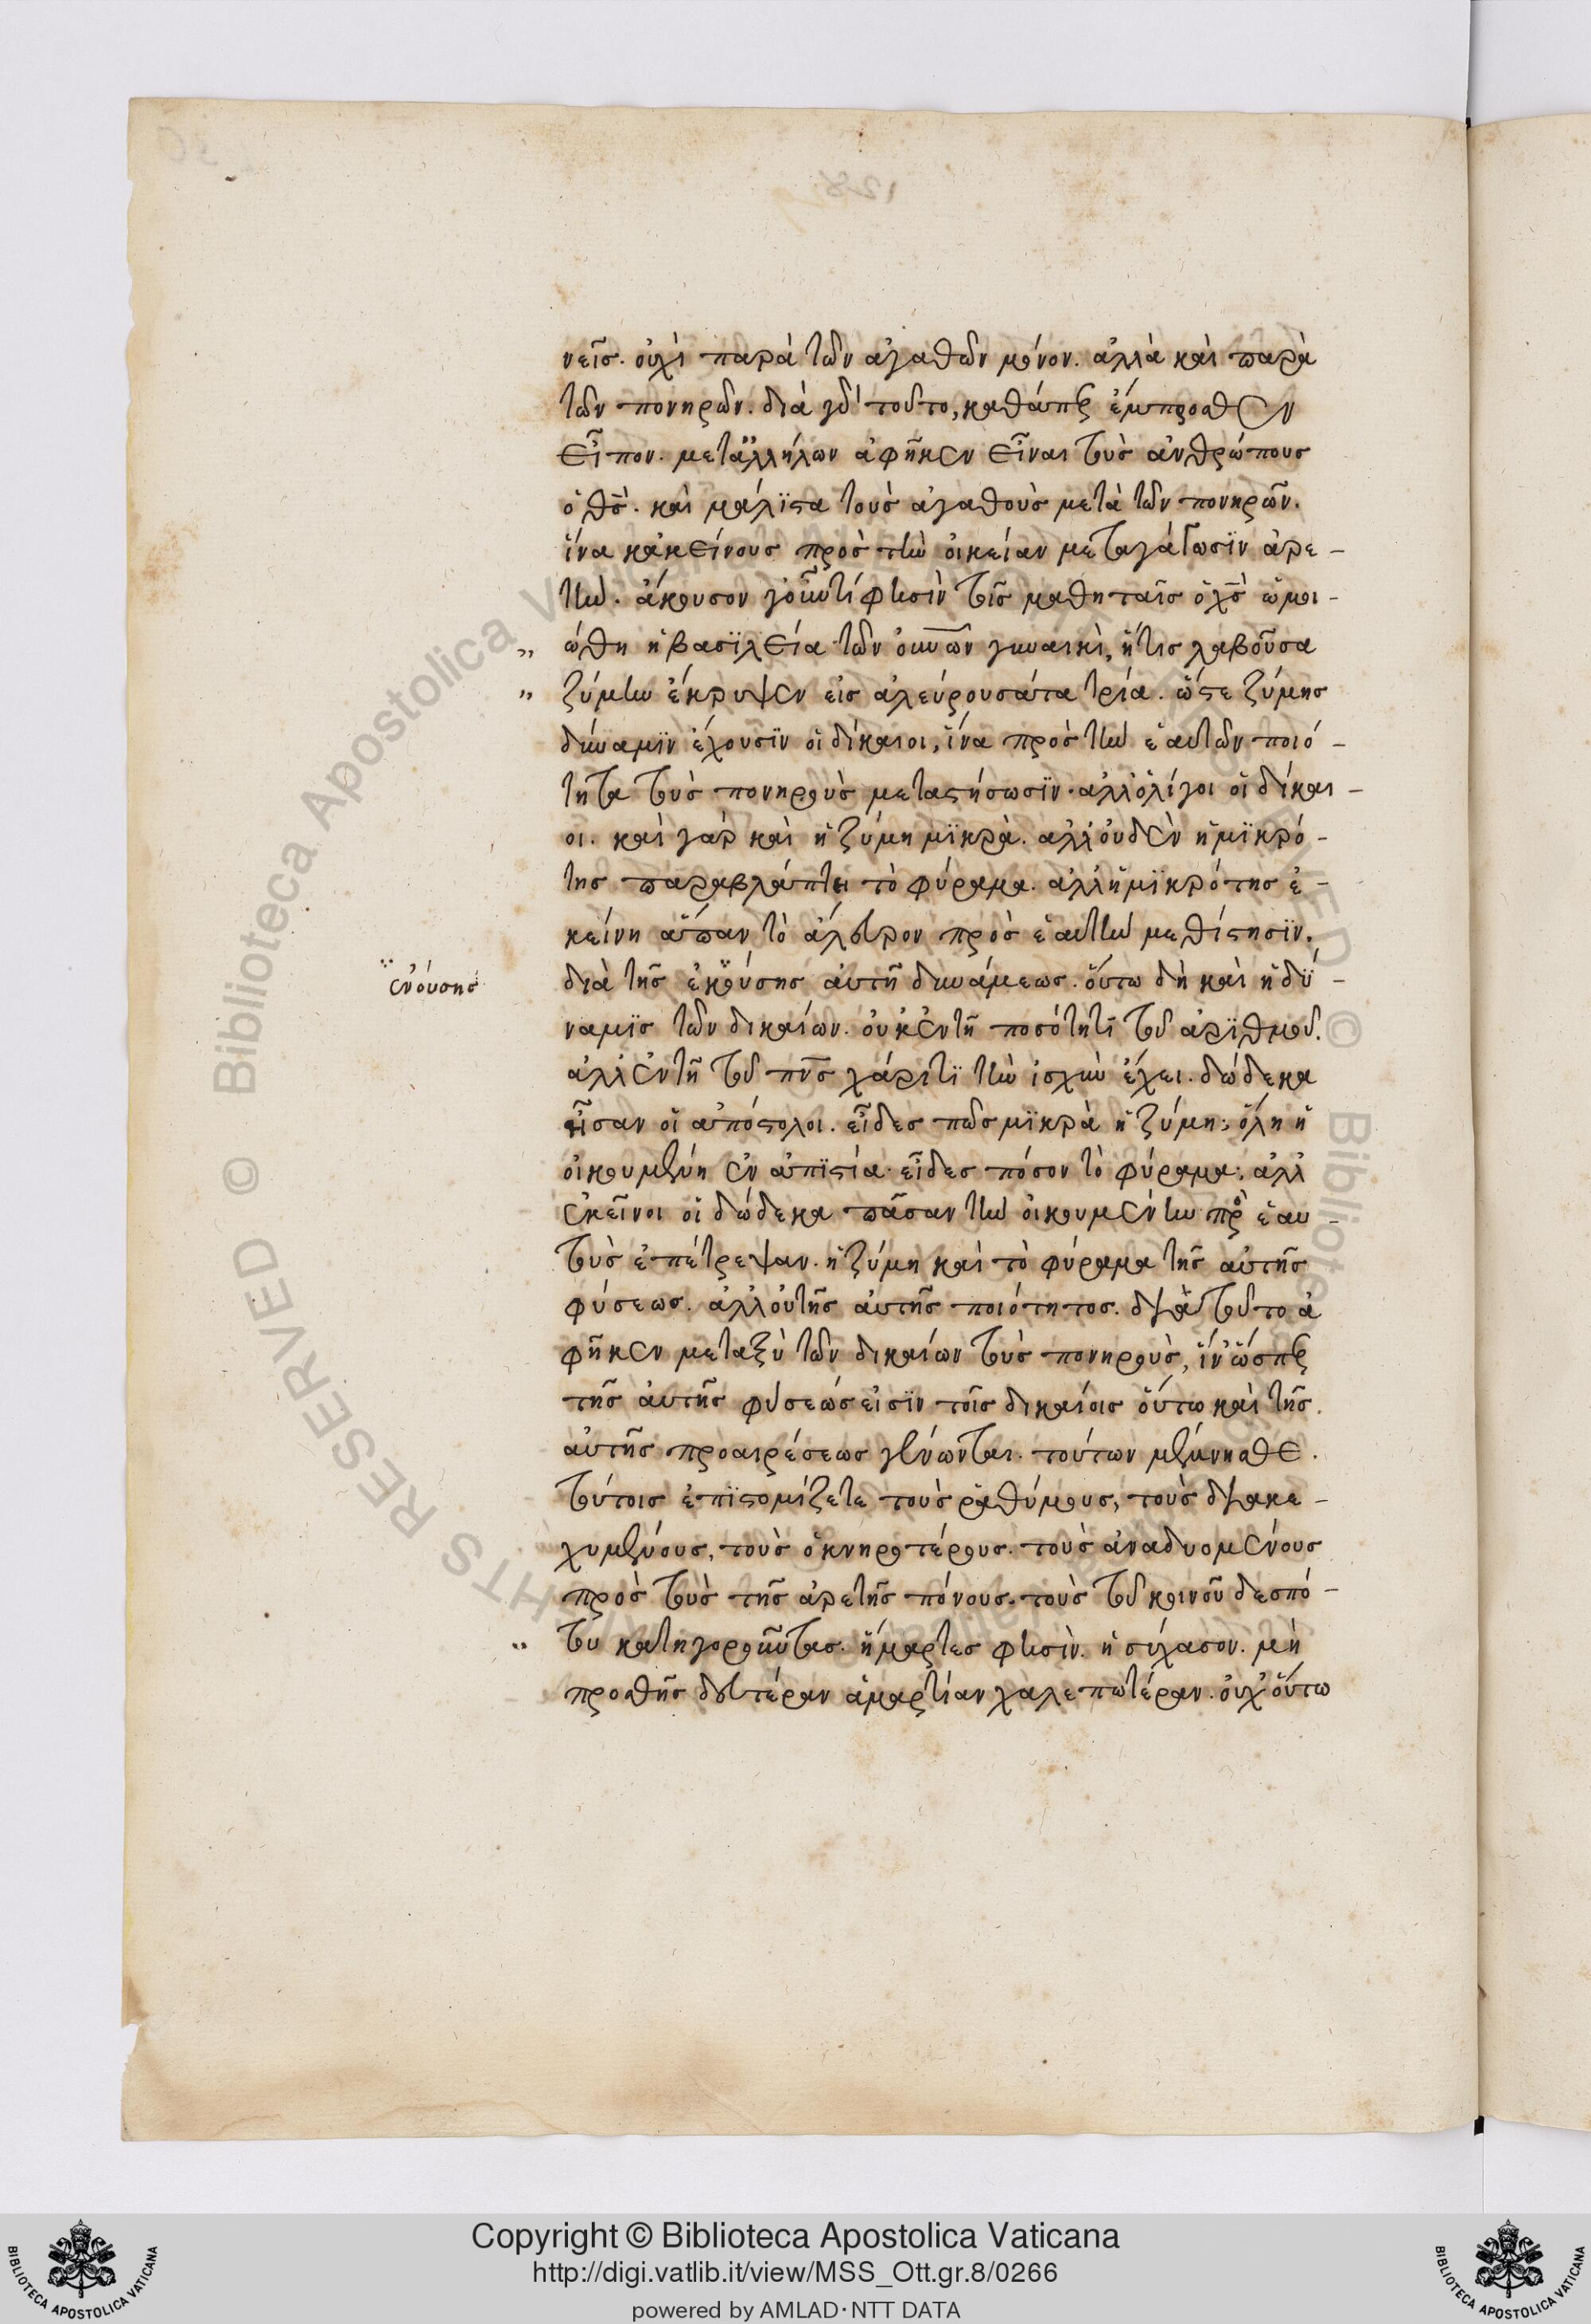 νεῖς. οὐχὶ παρὰ τῶν ἀγαθῶν μόνον. ἀλλὰ καὶ παρὰ
τῶν πονηρῶν. διὰ γὰρ τοῦτο, καθάπερ ἔμπροσθεν
εἶπον. μετ ἀλλήλων ἀφῆκεν εἶναι τοὺς ἀνθρώπους
ὁ θς. καὶ μάλιστα τοὺς ἀγαθοὺς μετὰ τῶν πονηρῶν.
ἵνα κἀκείνους πρὸς τὴν οἰκείαν μεταγάγωσϊν ἀρε-
τήν. ἄκουσον γοῦν τί φησὶν τοῖς μαθηταῖς ὁ χς ὡμοι-
" ώθη ἡ βασϊλεία τῶν οὐνῶν γυναικὶ, ἥτις λαβοῦσα
" ζύμην ἔκρυψεν εἰς ἀλεύρου σάτα τρία. ὥστε ζύμης
δύναμϊν ἔχουσϊν οἱ δίκαιοι, ἵνα πρὸς τὴν ἑαυτῶν ποιό-
τητα τοὺς πονηροὺς μεταστήσωσϊν. ἀλλ ὀλίγοι οἱ δίκαι-
οι. καὶ γὰρ καὶ ἡ ζύμη μϊκρὰ. ἀλλ οὐδὲν ἡ μϊκρό-
της παραβλάπτει τὸ φύραμα. ἀλλ ἡ μϊκρότης ἐ-
κείνη ἅπαν τὸ ἄλευρον πρὸς ἑαυτὴν μεθίστησϊν.
ἐνούσης
διὰ τῆς ἐκούσης αὐτῆ δυνάμεως. οὕτω δὴ καὶ ἡ δύ-
ναμϊς τῶν δικαίων. οὐκ ἐν τῆ ποσότητϊ τοῦ ἀρϊθμοῦ.
ἀλλ ἐν τῆ τοῦ πνς χάριτϊ τὴν ἰσχὺν ἔχει. δώδεκα
ἦσαν οἱ ἀπόστολοι. εἶδες πῶς μϊκρὰ ἡ ζύμη; ὅλη ἡ
οἰκουμένη ἐν ἀπϊστία. εἶδες πόσον τὸ φύραμα; ἀλλ
ἐκεῖνοι οἱ δώδεκα πᾶσαν τὴν οἰκουμένην πρὸς ἑαυ-
τοὺς ἐπέτρεψαν. ἡ ζύμη καὶ τὸ φύραμα τῆς αὐτῆς
φύσεως. ἀλλ οὐ τῆς αὐτῆς ποιότητος. διὰ τοῦτο ἀ
φῆκεν μεταξὺ τῶν δικαίων τοὺς πονηροὺς, ἵν ὥσπερ
τῆς αὐτῆς φύσεώς εἰσϊν τοῖς δικαίοις οὕτω καὶ τῆς
αὐτῆς προαιρέσεως γένωνται. τούτων μέμνησθε.
τούτοις ἐπϊστομίζετε τοὺς ῥαθύμους, τοὺς διακε-
χυμένους, τοὺς ὀκνηροτέρους. τοὺς ἀναδυομένους
πρὸς τοὺς τῆς ἀρετῆς πόνους. τοὺς τοῦ κοινοῦ δεσπό-
" του κατηγοροῦντας. ἥμαρτες φησὶν. ἡσύχασον. μὴ
προσθῆς δευτέραν ἁμαρτίαν χαλεπωτέραν. οὐχ οὕτω
Copyright © Biblioteca Apostolica Vaticana
http://digi.vatlib.it/view/MSS_Ott.gr.8/0266
powered by AMLAD · NTT DATA